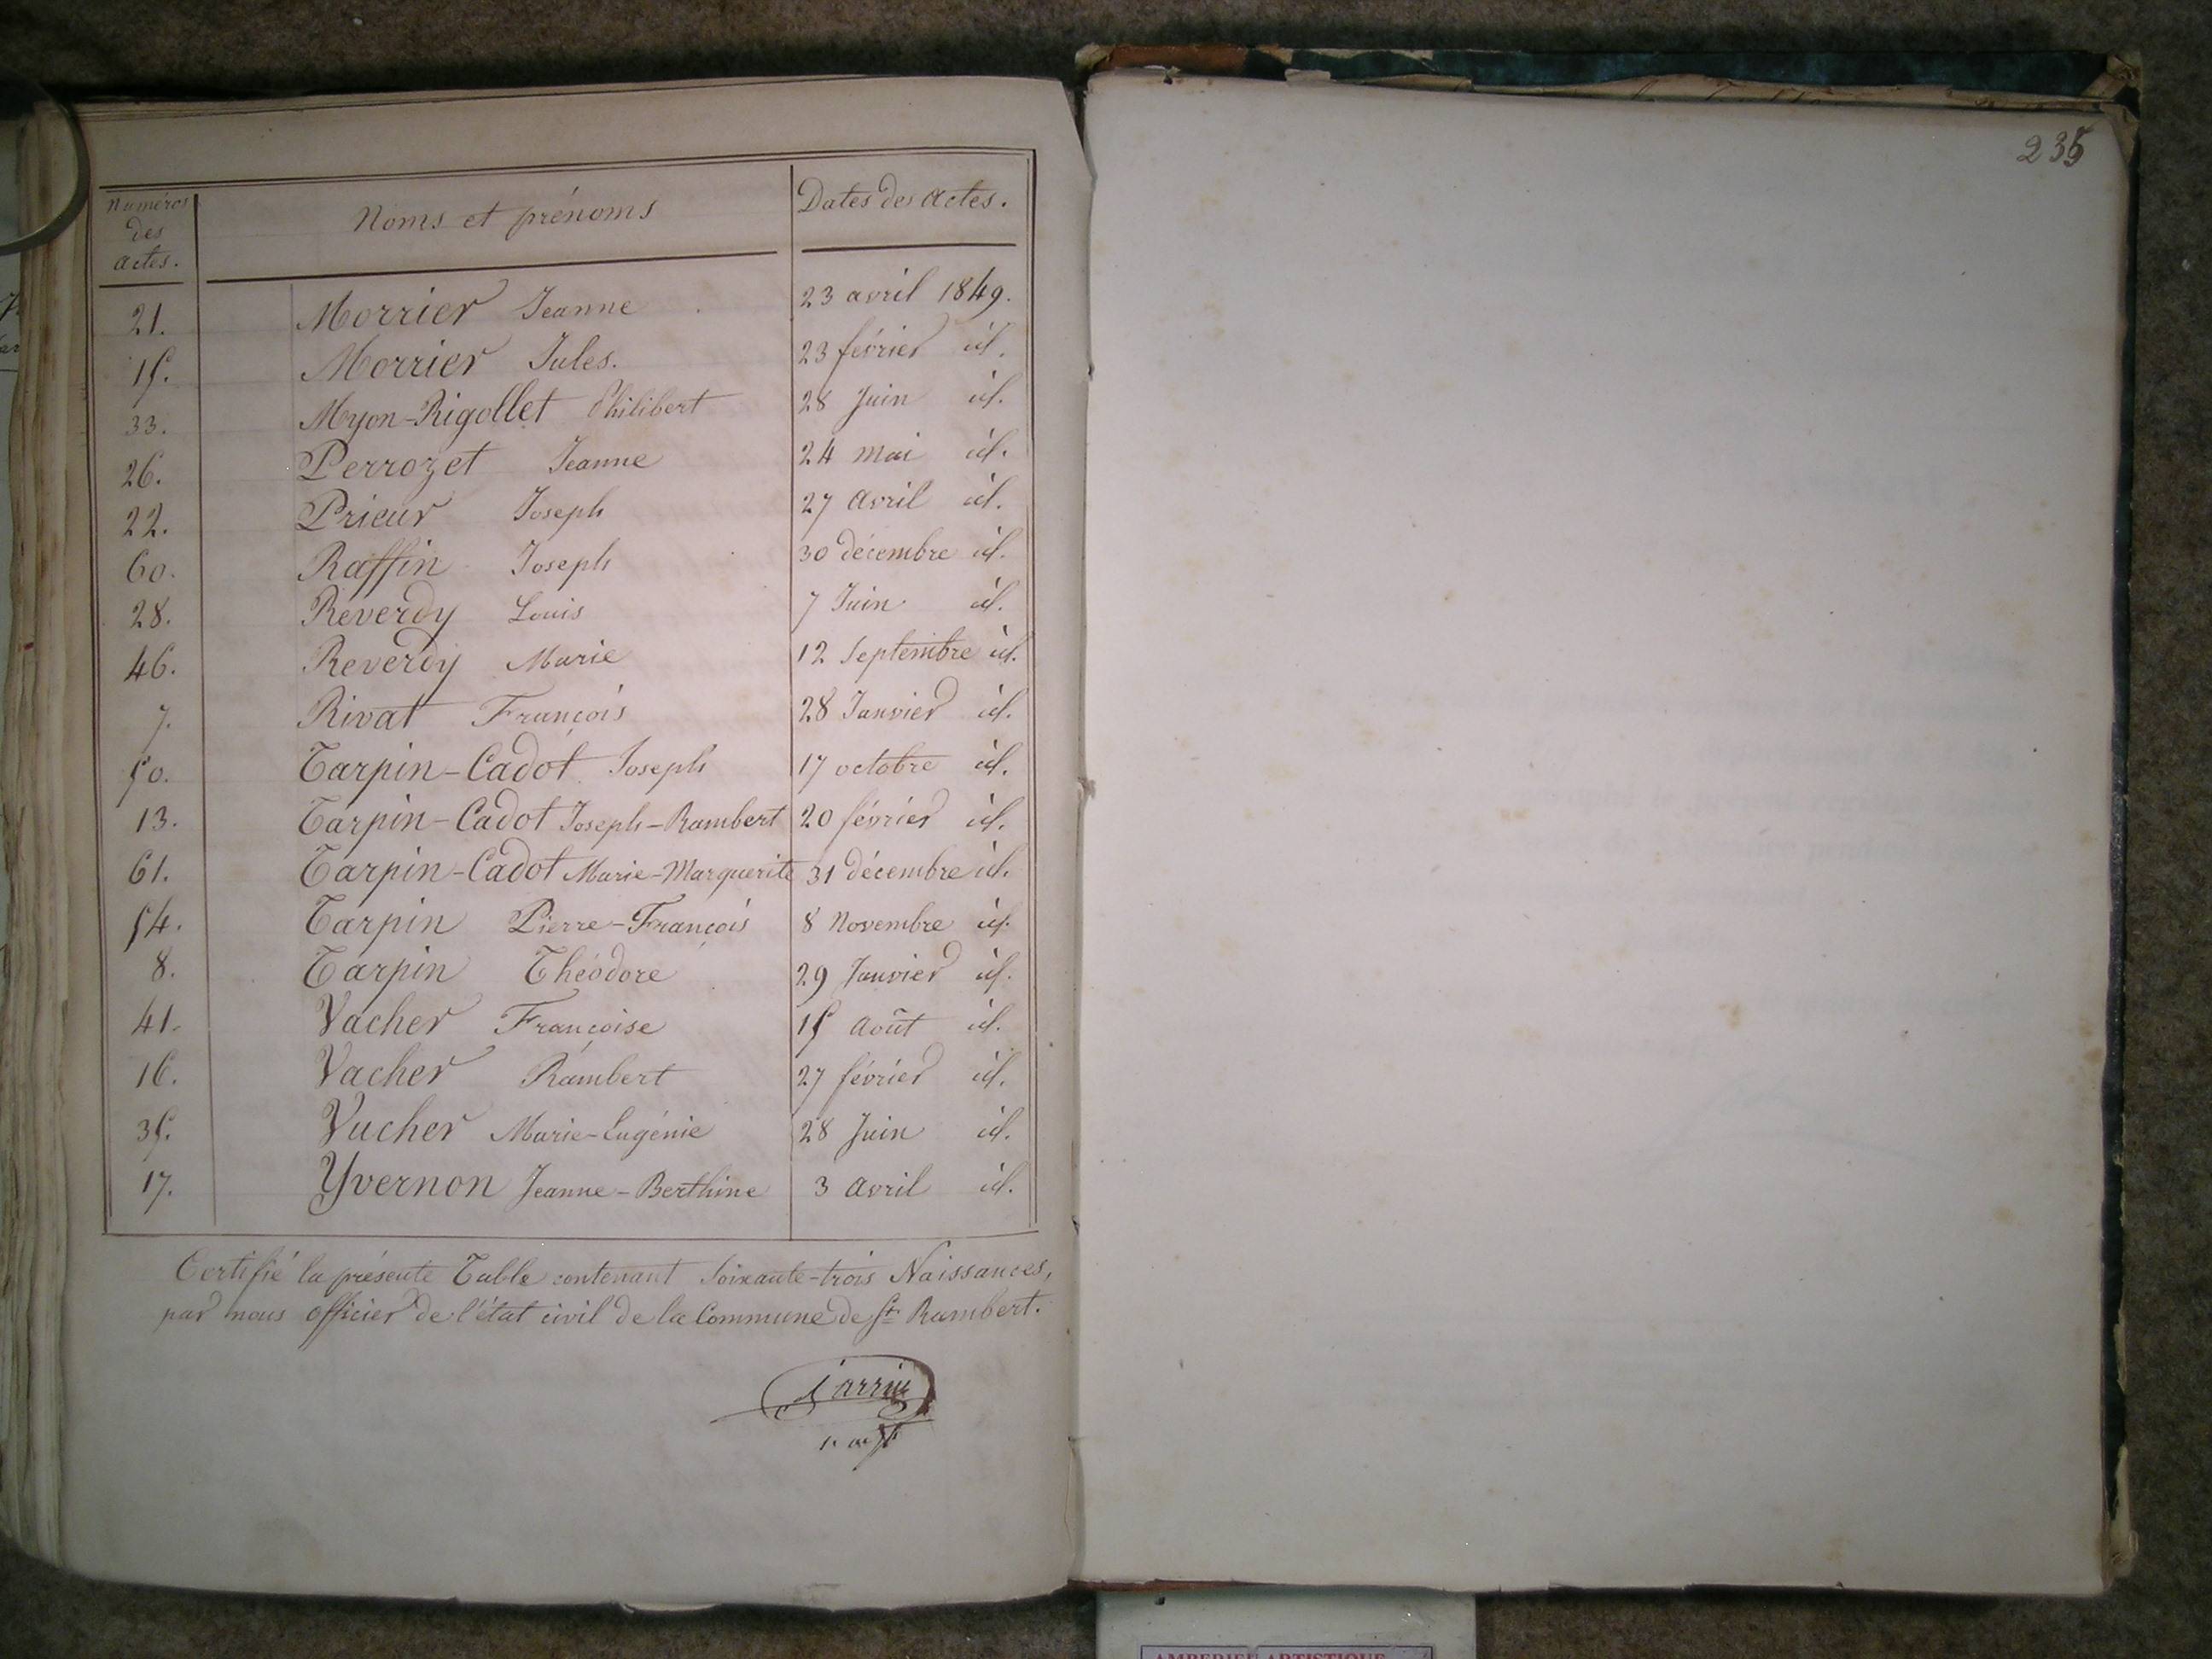 235
Numéros des actes. Noms et prénoms Dates des actes.
21. Morrier Jeanne 23 avril 1849.
15. Morrier Jules. 23 février id.
33. Myon-Rigollet Philibert 28 Juin id.
26. Perrozet Jeanne 24 mai id.
22. Prieur Joseph 27 avril id.
60. Raffin Joseph 30 décembre id.
28. Reverdy Louis 7 Juin id.
46. Reverdy Marie 12 Septembre id.
7. Rivat François 28 Janvier id.
50. Tarpin-Cadot Joseph 17 octobre id.
13. Tarpin-Cadot Joseph-Rambert 20 février id.
61. Tarpin-Cadot Marie-Marguerite 31 décembre id.
54. Tarpin Pierre-François 8 Novembre id.
8. Tarpin Théodore 29 Janvier id.
41. Vacher Françoise 15 Août id.
16. Vacher Rambert 27 février id.
35. Vucher Marie-Eugénie 28 Juin id.
17. Yvernon Jeanne-Berthine 3 avril id.
Certifié la présente Table contenant soixante-trois Naissances,
par nous officier de l'état civil de la Commune de St Rambert.
AMBERIEU ARTISTIQUE